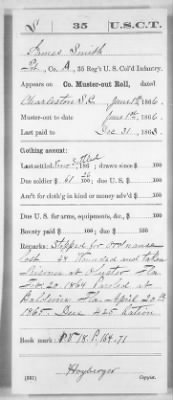 S | 35 | U.S.C.T.
James Smith
Pvt, Co. A, 35 Reg't U. S. Col'd Infantry.
Appears on Co. Muster-out Roll, dated
Charleston S.C. June 1st, 1866.
Muster-out to date June 1st, 1866.
Last paid to Dec 31, 1863.
Clothing account:
Last settled, 186 ; drawn since $ 100
Due soldier $ 61 26/100; due U. S. $ 100
Am't for cloth'g in kind or money adv'd $ 100
Due U. S. for arms, equipments, &c., $ 100
Bounty paid $ 100; due $ 100
Remarks: Stopped for Ordnance
lost. Wounded and taken
Prisoner at Olustee Fla
Feb. 20, 1864 Paroled at
Baldwin Fla April 20th
1865. Due ration
Book mark: R.& P. 18. P. 164-71
Copyist.